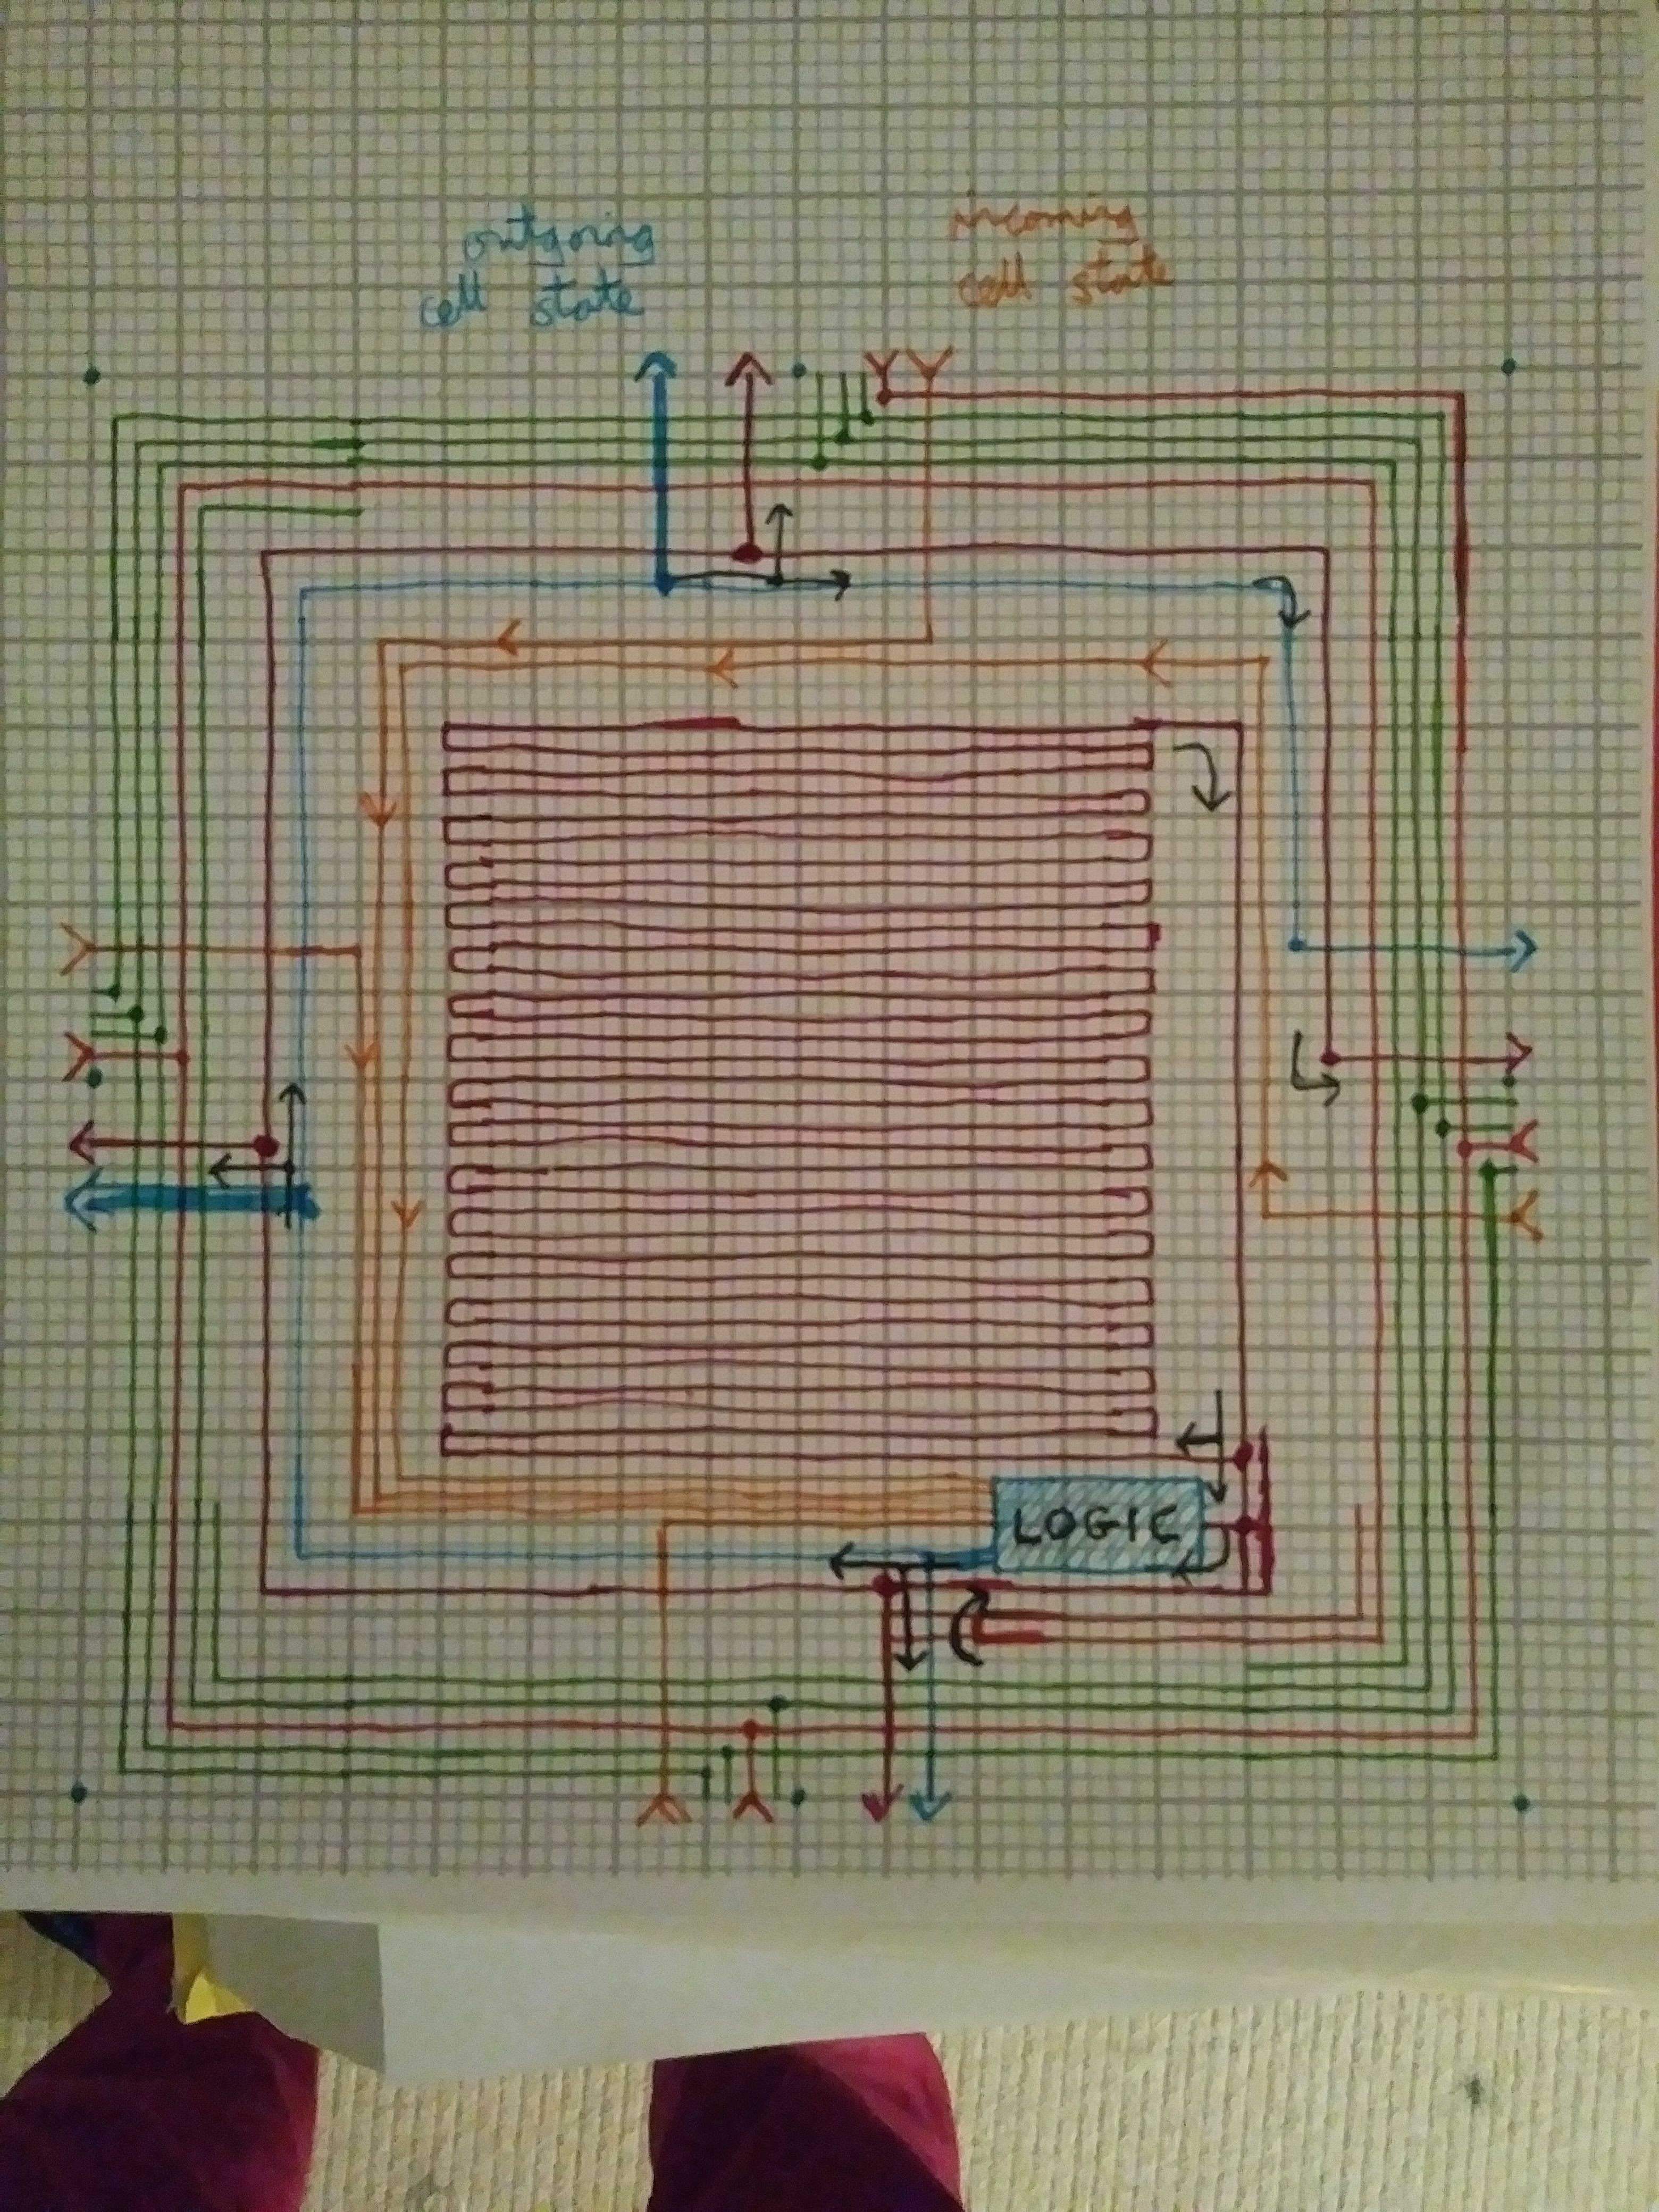 outgoing
cell state
incoming
cell state
LOGIC